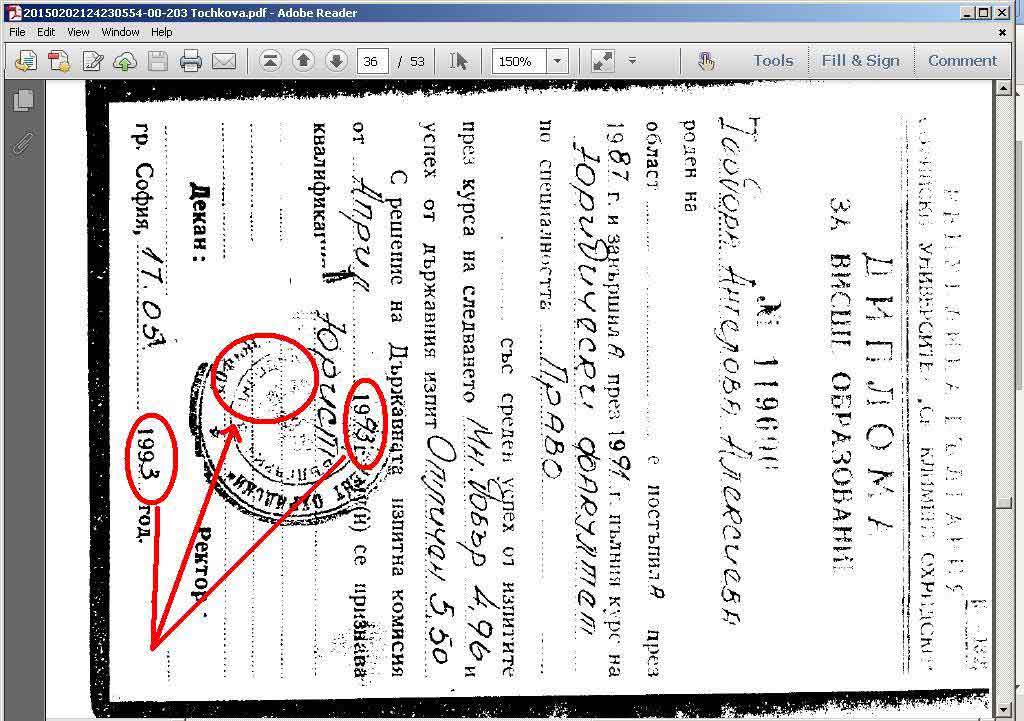 20150202124230554-00-203 Tochkova.pdf - Adobe Reader
File Edit View Window Help
36 / 53 150% Tools Fill & Sign Comment
УНИВЕРСИТЕТ „СВ. КЛИМЕНТ ОХРИДСКИ“
ДИПЛОМА
ЗА ВИСШЕ ОБРАЗОВАНИЕ
№ 11960
Ангелова Алексиева
роден на
област е постъпила през
1987 г. и завършила през 1991 г. пълния курс на
Юридически факултет
по специалността Право
със среден успех от изпитите
през курса на следването Мн. добър 4,96 и
успех от държавния изпит Отличен 5,50
С решение на Държавната изпитна комисия
от Април 1993 г. (и) се признава
квалификация Юрист
Декан: Ректор:
гр. София, 17.05 1993 год.